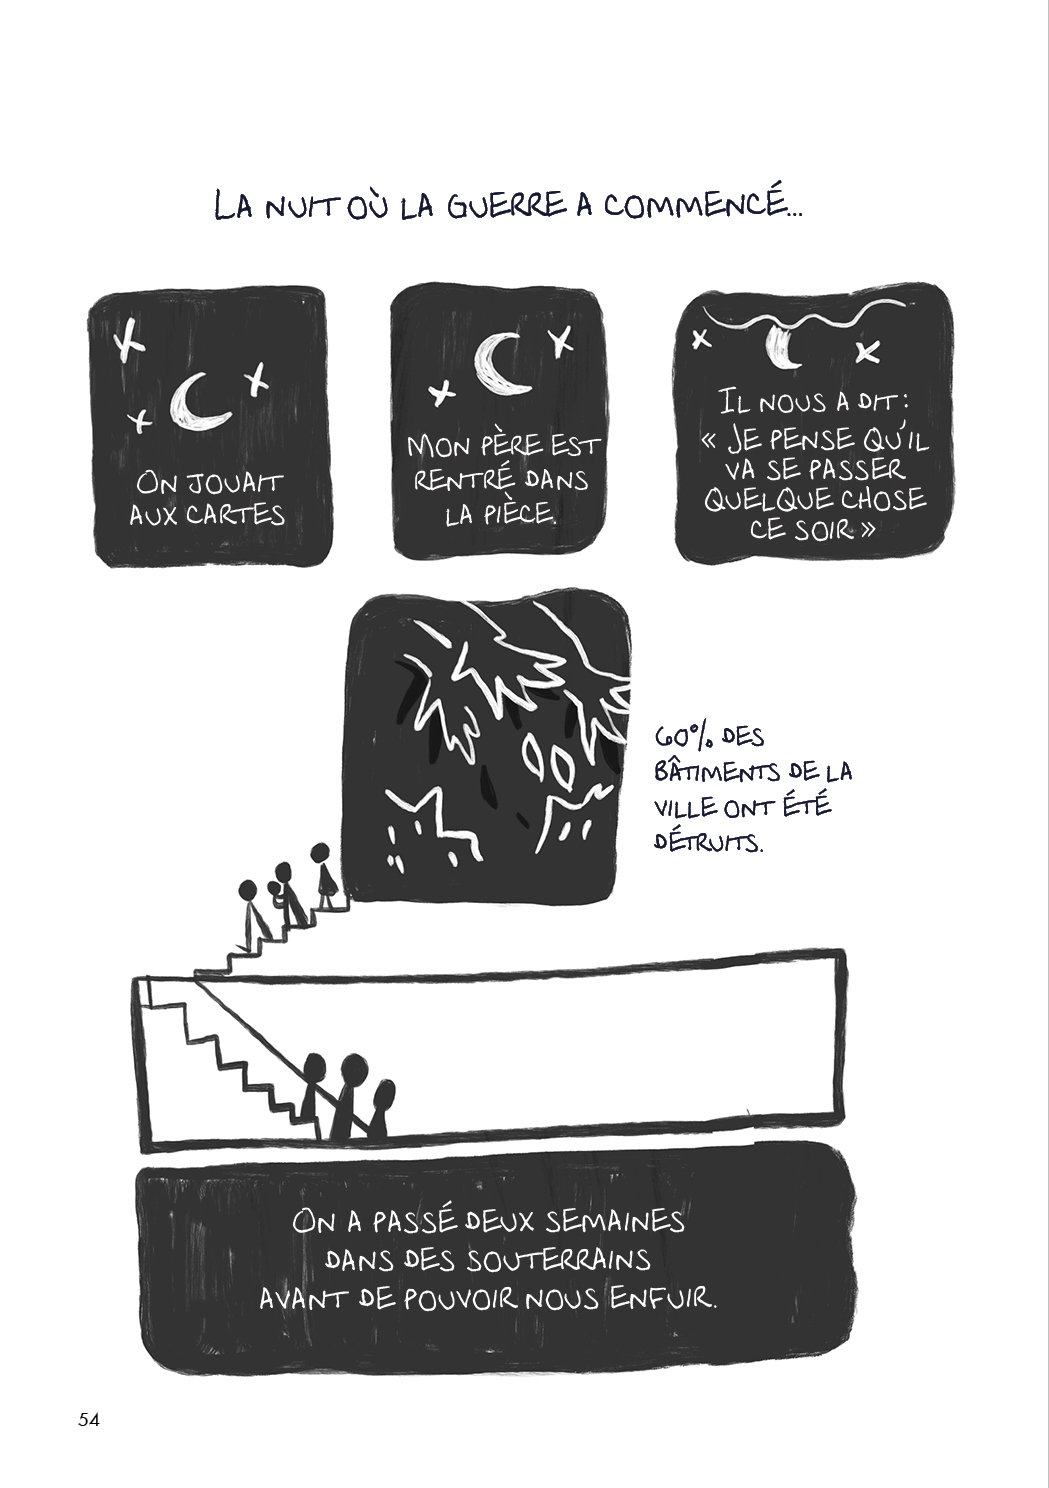 LA NUIT OÙ LA GUERRE A COMMENCÉ...
ON JOUAIT
AUX CARTES
MON PÈRE EST
RENTRÉ DANS
LA PIÈCE.
IL NOUS A DIT :
« JE PENSE QU'IL
VA SE PASSER
QUELQUE CHOSE
CE SOIR. »
60% DES
BÂTIMENTS DE LA
VILLE ONT ÉTÉ
DÉTRUITS.
ON A PASSÉ DEUX SEMAINES
DANS DES SOUTERRAINS
AVANT DE POUVOIR NOUS ENFUIR.
54